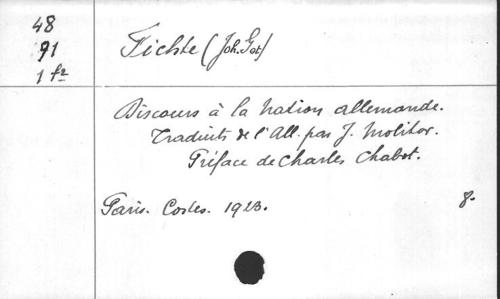 48
91
1 f²
Fichte (Joh. Got)
Discours à la Nation allemande.
Traduits de l'All. par J. Molitor.
Préface de Charles Chabot.
Paris. Costes. 1923. 8.